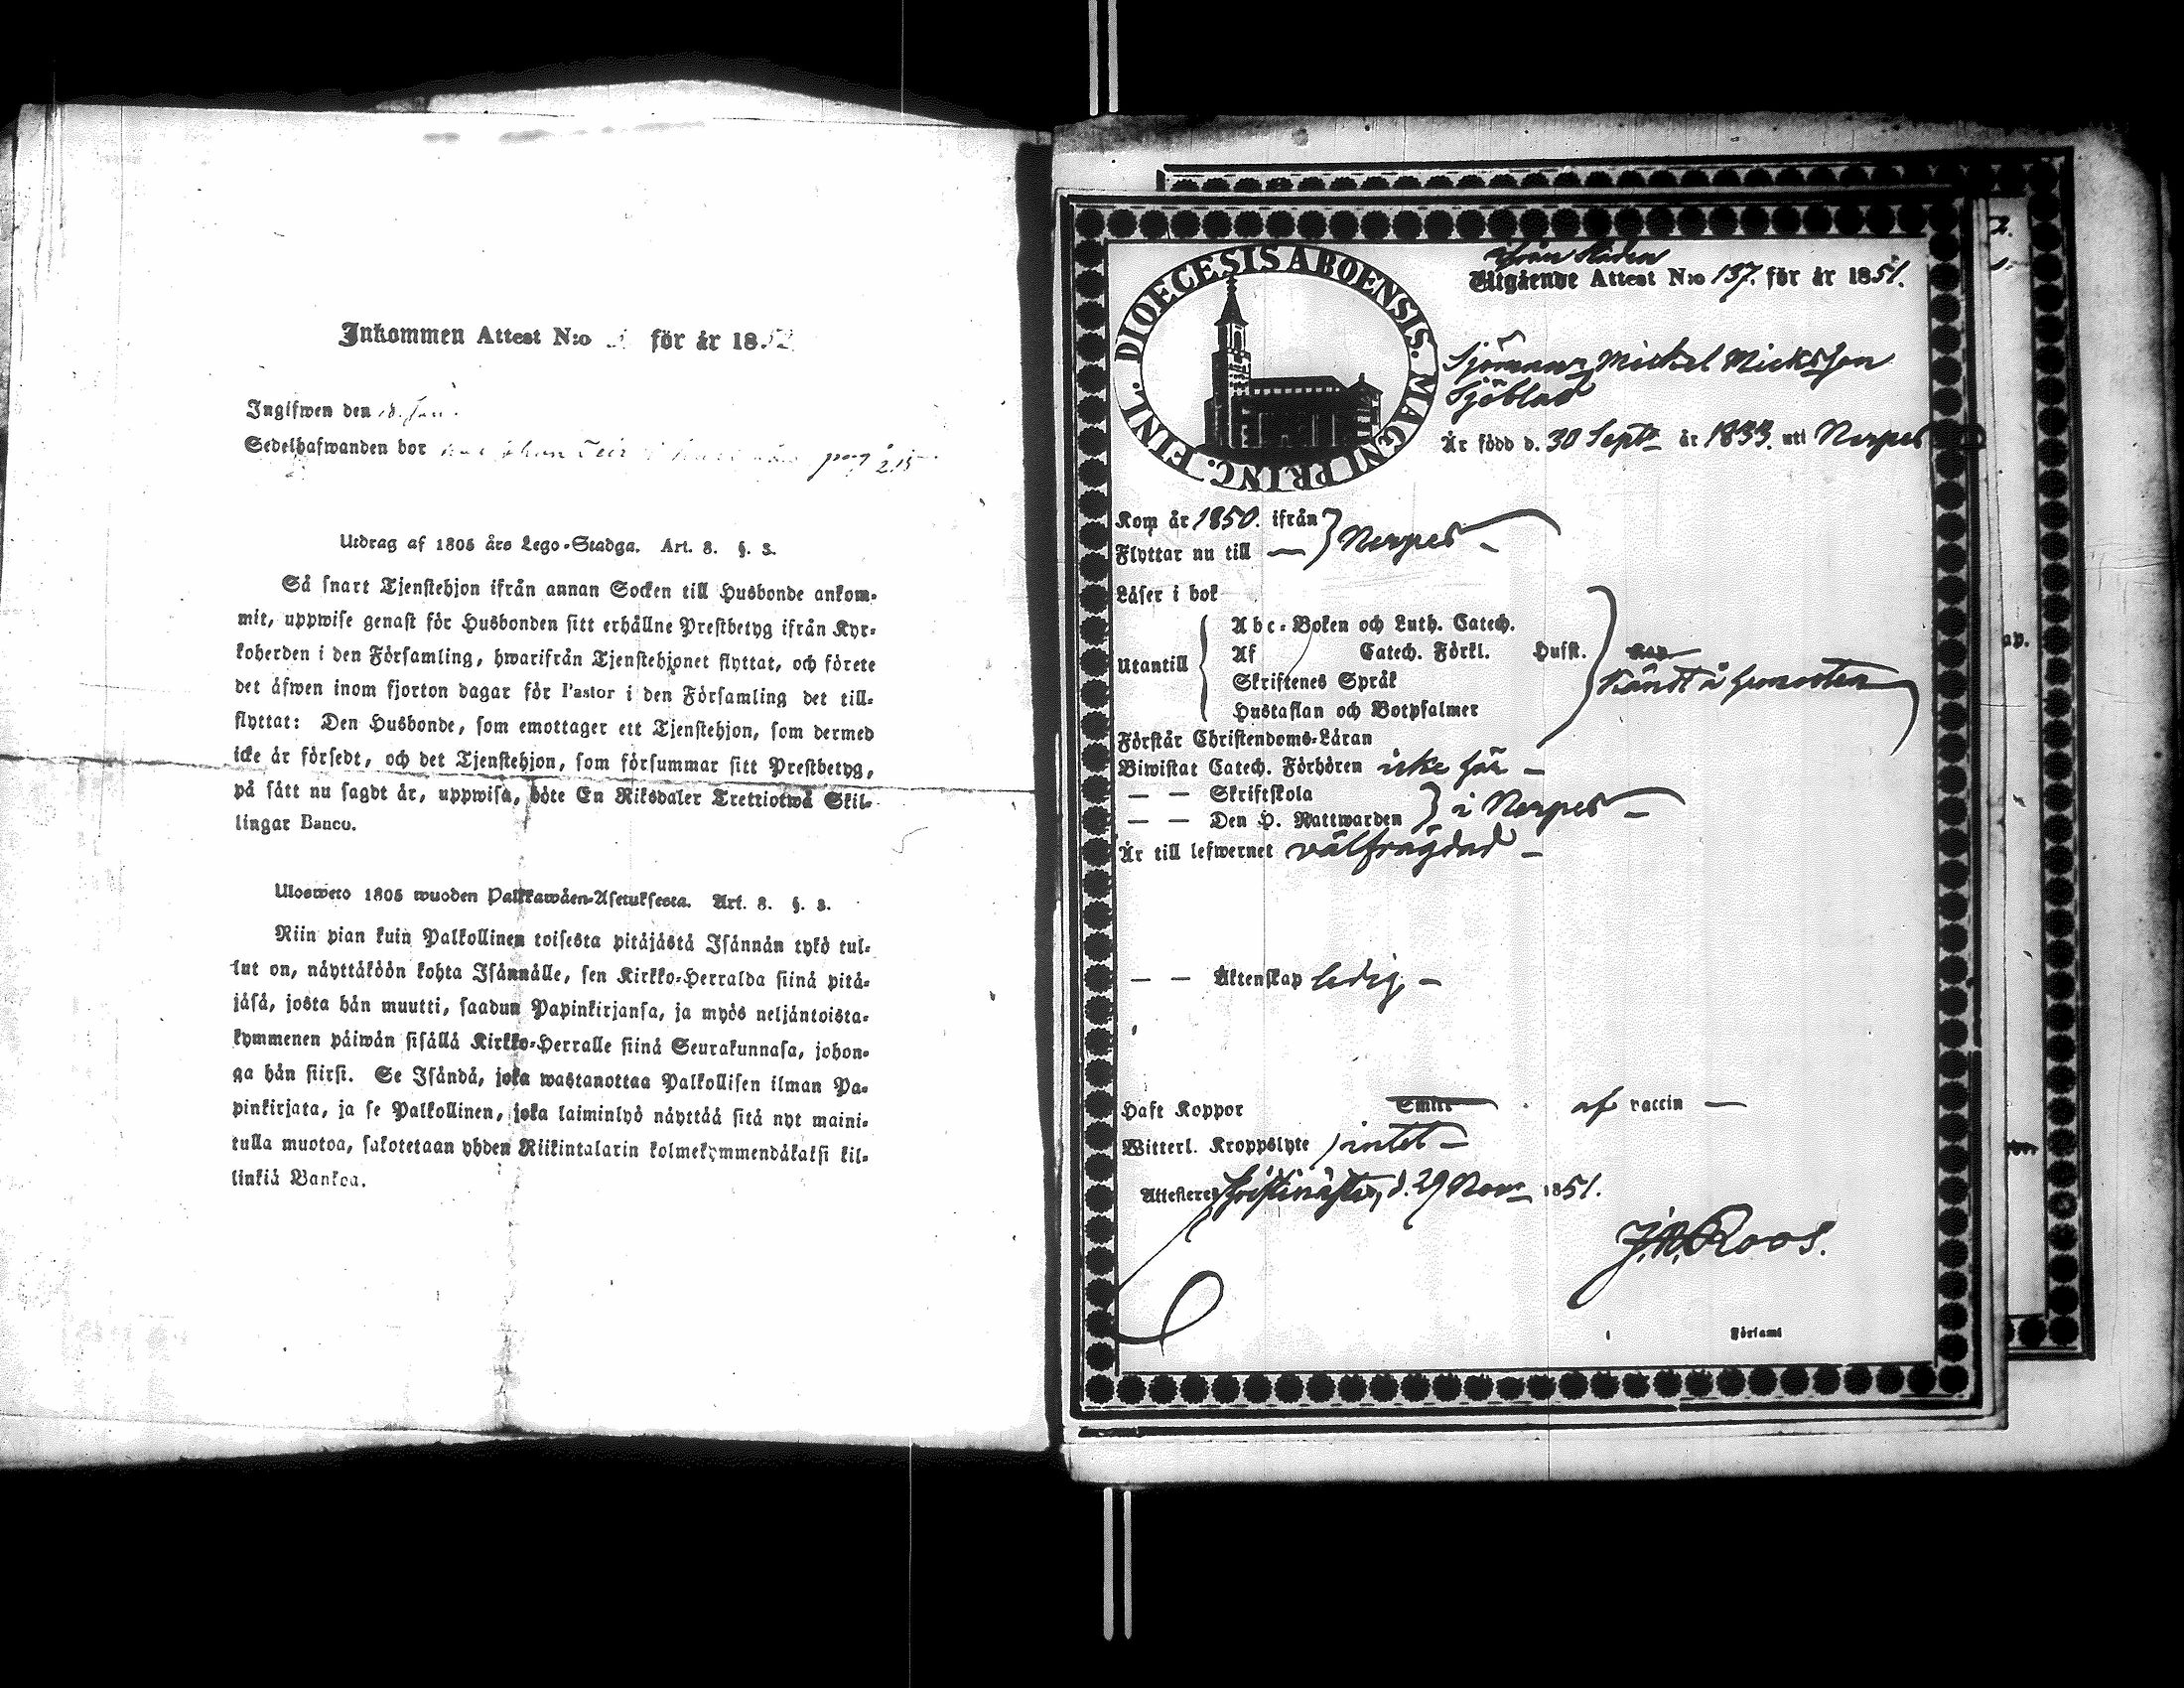 Inkommen Attest N:o för år 1852
Ingifwen den 18. Jan.
Sedelhafwanden bor pag 215
Utdrag af 1805 års Lego-Stadga. Art. 8. §. 3.
Så snart Tjenstehjon ifrån annan Socken till Husbonde ankom-
mit, uppwise genast för Husbonden sitt erhållne Prestbetyg ifrån Kyr-
koherden i den Församling, hwarifrån Tjenstehjonet flyttat, och förete
det äfwen inom fjorton dagar för Pastor i den Församling det till-
flyttat: Den Husbonde, som emottager ett Tjenstehjon, som dermed
icke är försedt, och det Tjenstehjon, som försummar sitt Prestbetyg,
på sätt nu sagdt är, uppwisa, böte En Riksdaler Tretriotwå Skil-
lingar Banco.
Ulosweto 1805 wuoden Palkkawäen-Asetuksesta. Art. 8. §. 3.
Niin pian kuin Palkollinen toisesta pitäjästä Isännän tykö tul-
lut on, näyttäköön kohta Isännälle, sen Kirkko-Herralda siinä pitä-
jäsä, josta hän muutti, saadun Papinkirjansa, ja myös neljäntoista-
kymmenen päiwän sisällä Kirkko-Herralle siinä Seurakunnasa, johon-
ga hän siirsi. Se Isändä, joka wastanottaa Palkollisen ilman Pa-
pinkirjata, ja se Palkollinen, joka laiminlyö näyttää sitä nyt maini-
tulla muotoa, sakotetaan yhden Riikintalarin kolmekymmendäkaksi kil-
linkiä Bankoa.
DIOECESIS ABOENSIS. MAGNI PRINC. FINL.
ifrån Staden
Utgående Attest N:o 137. för år 1851.
Sjöman Mickel Micksson
Sjöblad
Är född d. 30 Septr år 1833. uti Nerpes
Kom år 1850. ifrån
Flyttar nu till — } Nerpes —
Läser i bok
Utantill
Abc-Boken och Luth. Catech.
Af Catech. Förkl. Husst.
Skriftenes Språk
Hustaflan och Botpsalmer
Känt å hemorten
Förstår Christendoms-Läran
Biwistat Catech. Förhören icke här —
— — Skriftskola
— — Den H. Nattwarden } i Nerpes —
Är till lefwernet välfrägdad —
— — Äktenskap ledig —
Haft Koppor af vaccin —
Witterl. Kroppslyte intet —
Attesterer Christinæstad, d. 29 Nov 1851.
J. N. Roos.
Församl